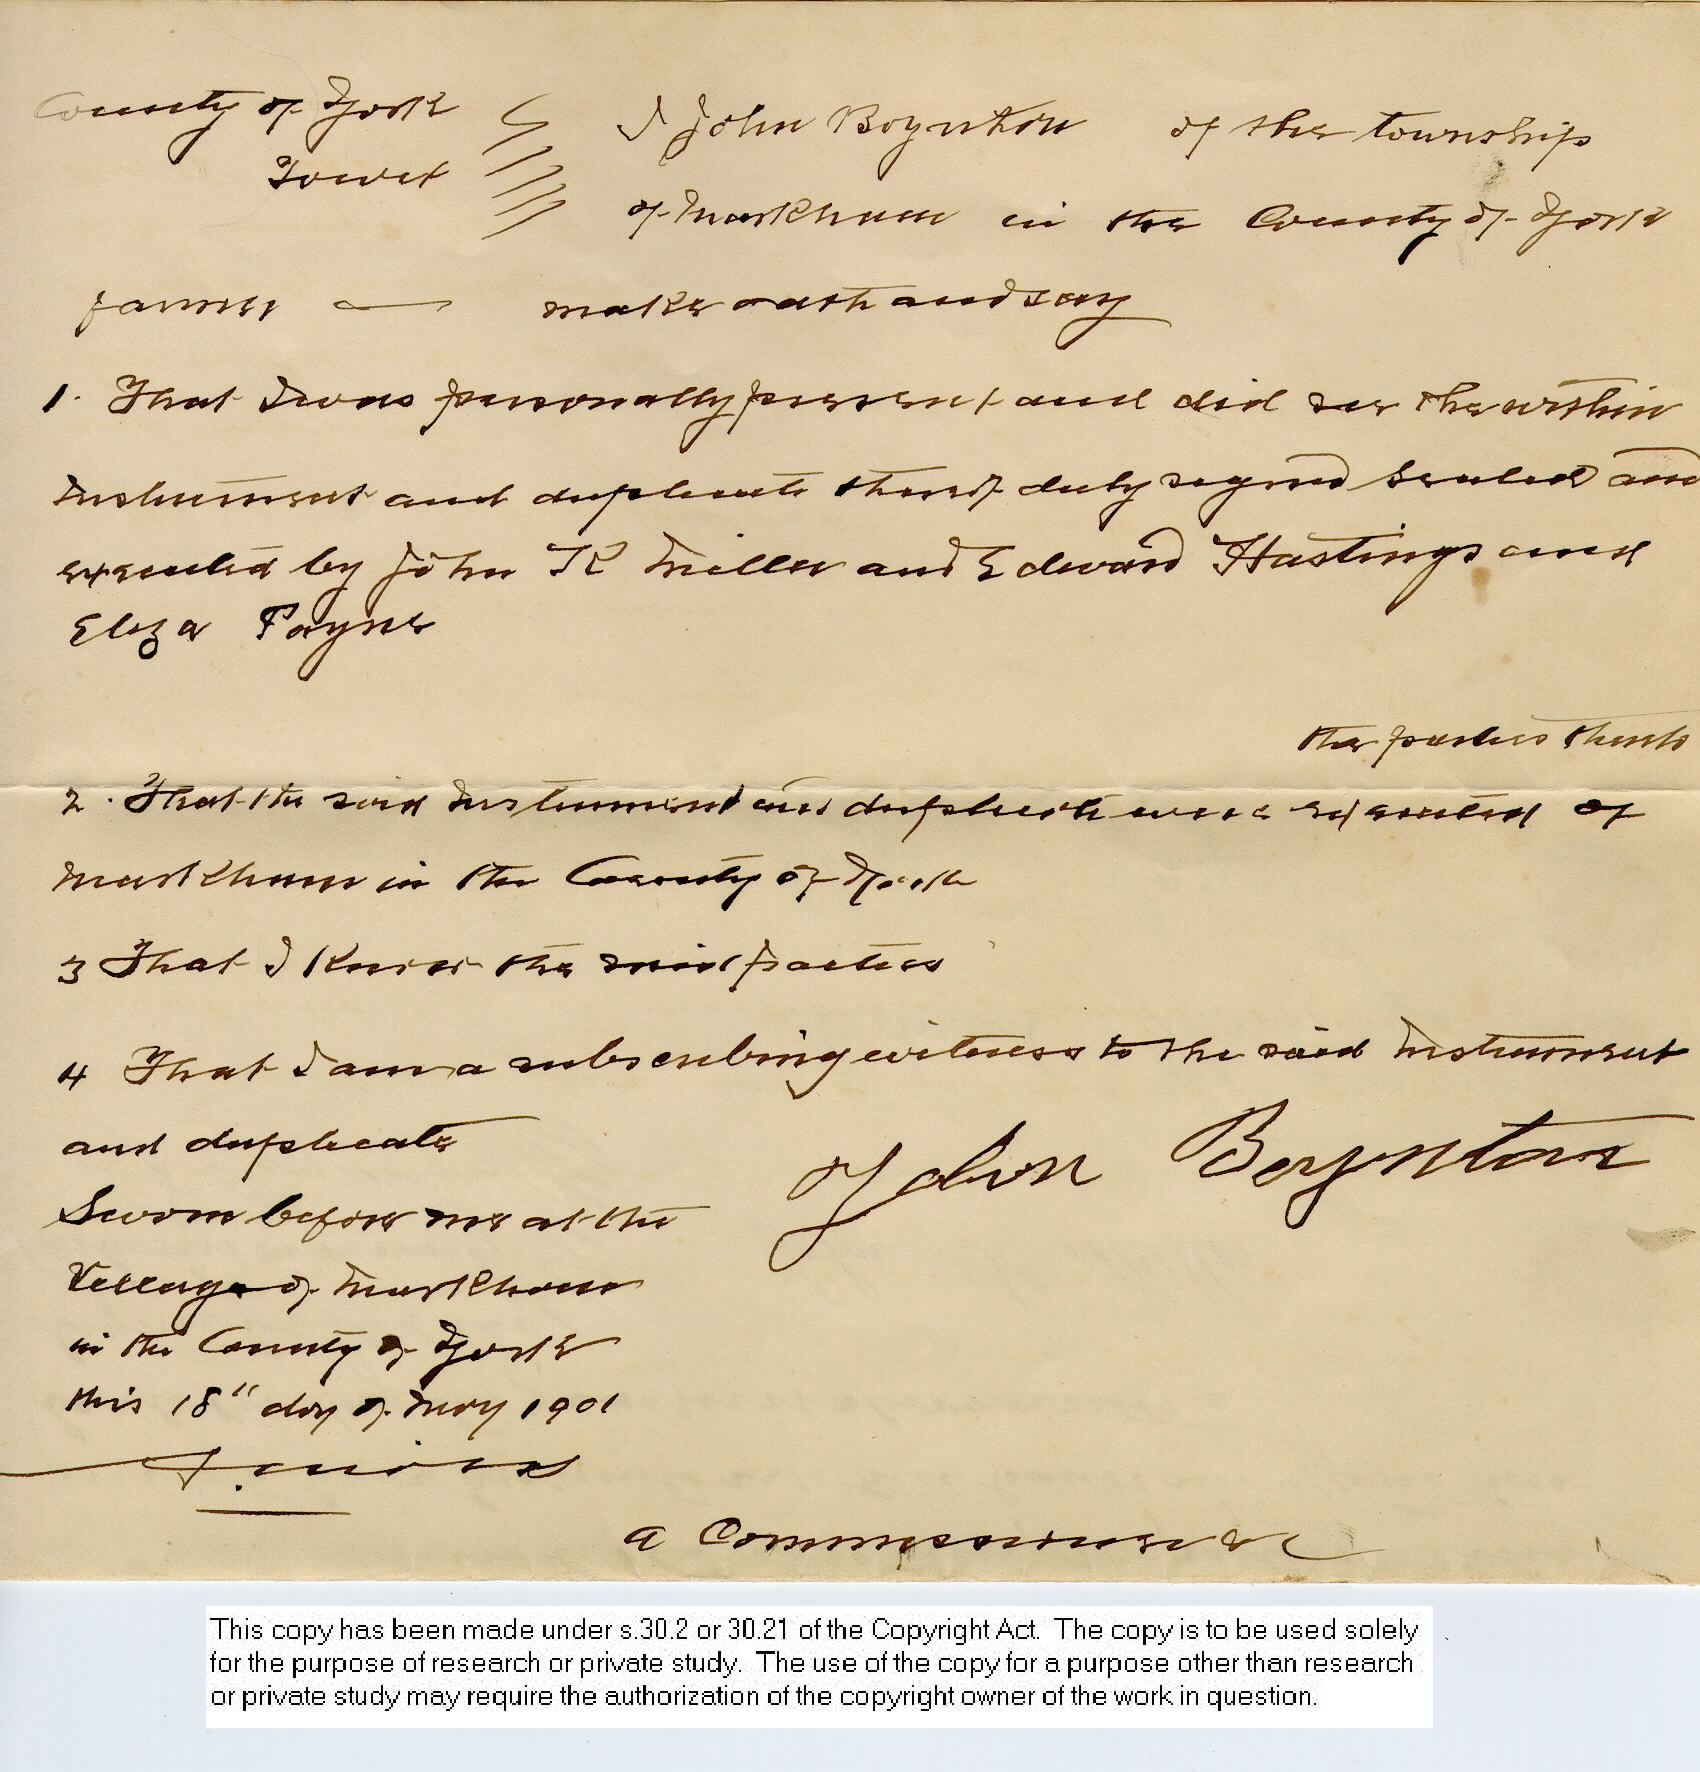 County of York I John Boynton of the township
To wit of Markham in the County of York
farmer make oath and say
1. That I was personally present and did see the within
Instrument and duplicate thereof duly signed sealed and
executed by John K Miller and Edward Hastings and
Eliza Payne
the parties thereto
2. That the said Instrument and duplicate were executed at
Markham in the County of York
3 That I know the said parties
4 That I am a subscribing witness to the said Instrument
and duplicate
John Boynton
Sworn before me at the
Village of Markham
in the County of York
this 18" day of May 1901
a Commissioner &c
This copy has been made under s.30.2 or 30.21 of the Copyright Act. The copy is to be used solely
for the purpose of research or private study. The use of the copy for a purpose other than research
or private study may require the authorization of the copyright owner of the work in question.